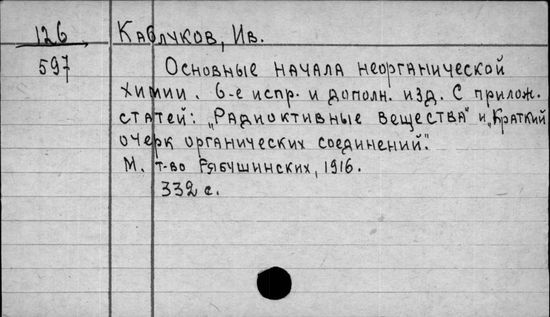 126 Каблуков, Ив.
597 Основные начала неорганической
химии. 6-е испр. и дополн. изд. С прилож.
статей: „Радиоктивные вещества" и „Краткий
очерк органических соединений".
М. т-во Рябушинских, 1916.
332 с.